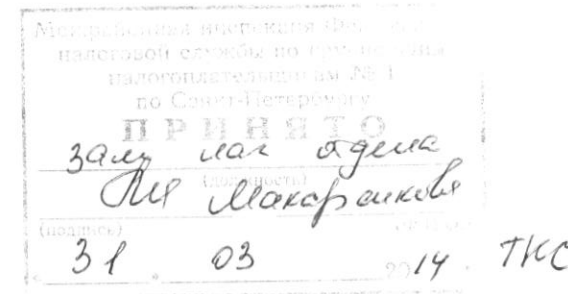 Межрайонная инспекция Федеральной
налоговой службы по крупнейшим
налогоплательщикам № 1
по Санкт-Петербургу
ПРИНЯТО
зам нач отдела
(должность)
(подпись)
31 03 2014 ТКС